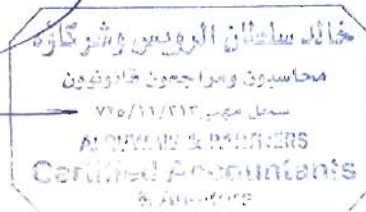 خالد سلطان الرويس وشركاؤه
محاسبون ومراجعون قانونيون
سجل مهني ٧٢٥/١١/٣١٣
& PARTNERS
Certified Accountants